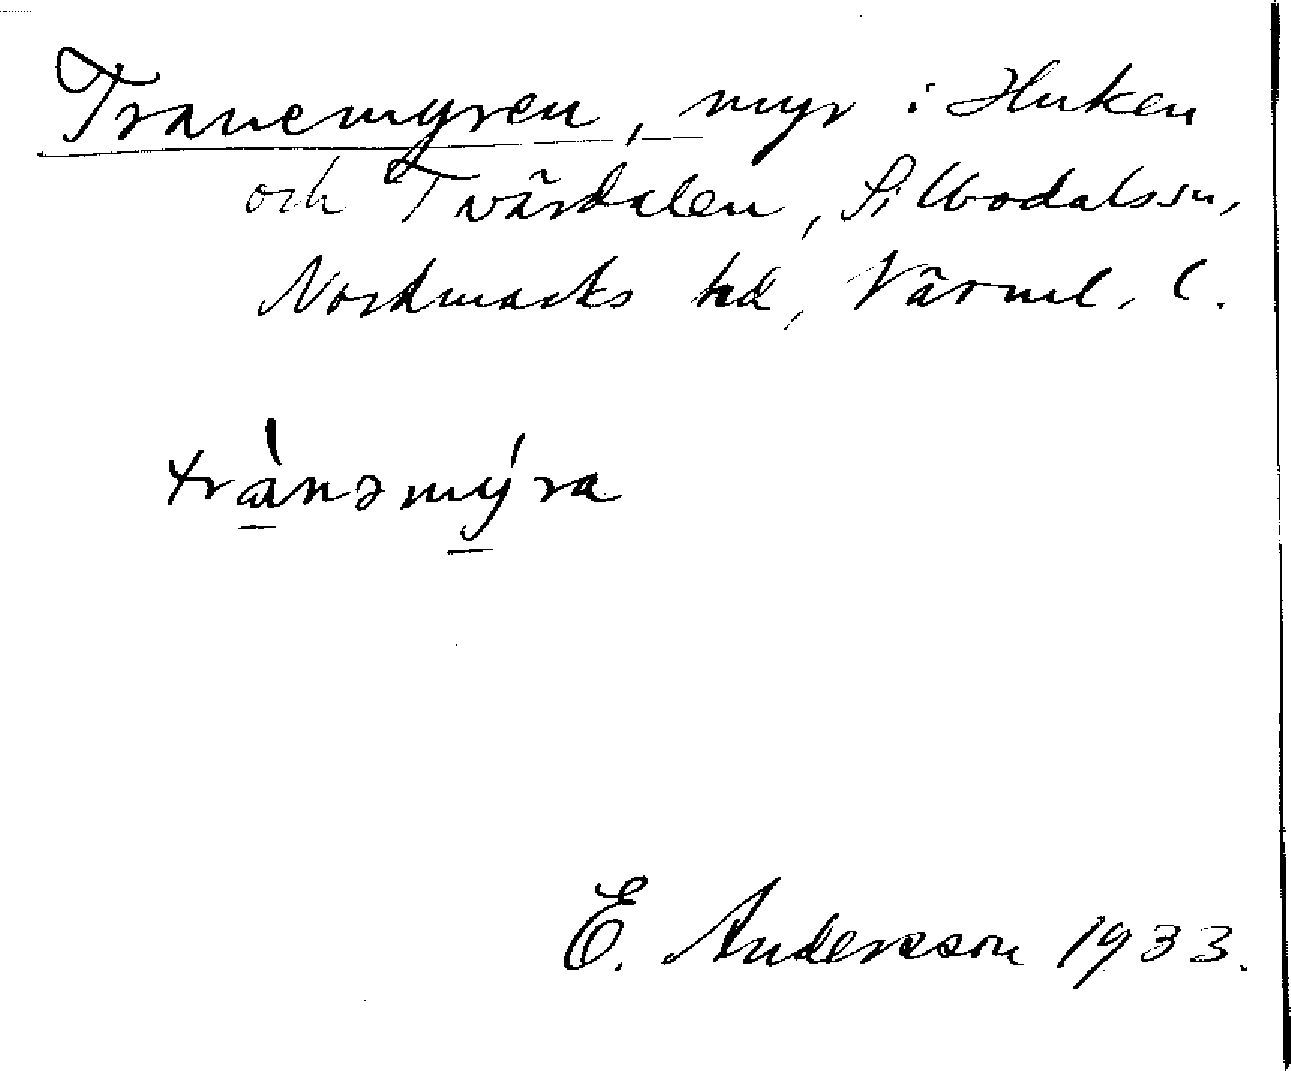 Tranemyren, myr i Huken
och Tvärdalen, Silbodals sn,
Nordmarks hd, Värml. l.
trànəmýra
E. Andersson 1933.